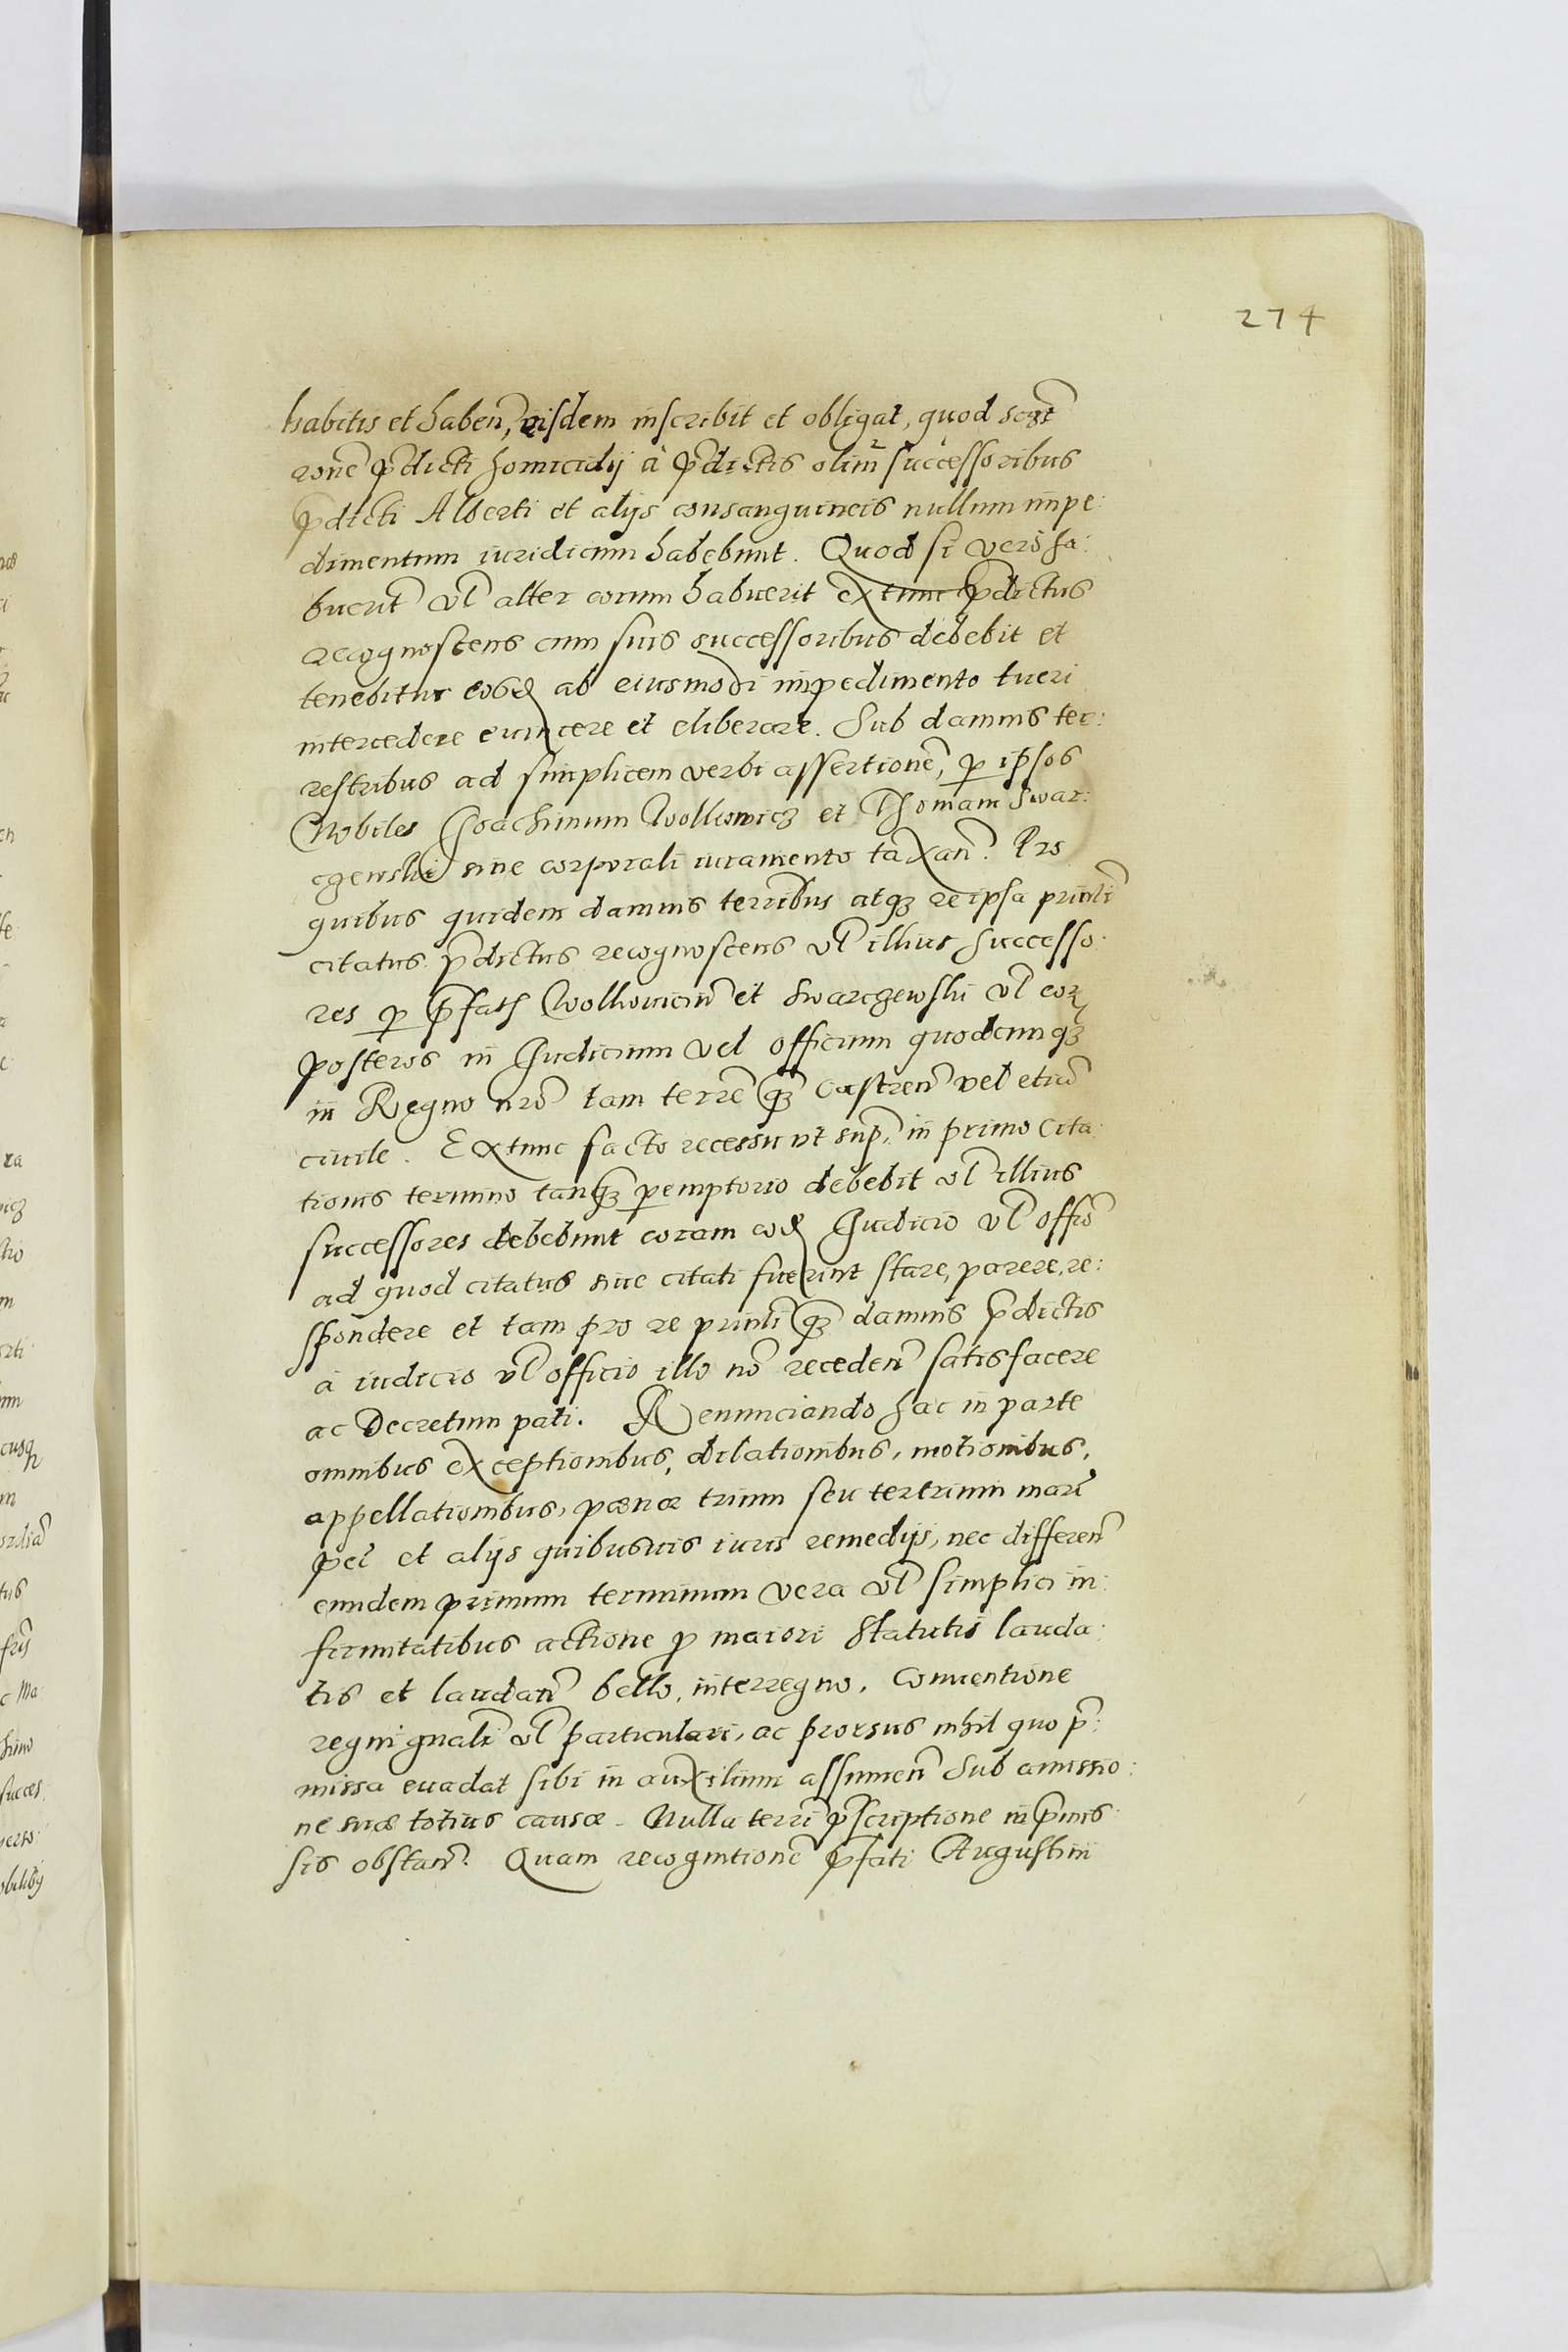 274
habitis et haben, eisdem inscribit et obligat, quod
rone pdicti homicidij à pdictis olim successoribus
pdicti Alberti et alijs consanguineis nullum impe:
dimentum iuridicum habebunt. Quod si vero ha:
buerit vl alter eorum habuerit extunc pdictus
recognoscens cum suis successoribus debebit et
tenebitur eosd ab eiusmodi impedimento tueri
intercedere euincere et eliberare. Sub damnis ter:
restribus ad simplicem verbi assertione, p ipsos
Nobiles Joachimum Wollowicz et Thomam Swar:
czewski sine corporali iuramento taxan. Pro
quibus quidem damnis terribus atqz re ipsa prinli
citatus pdictus recognoscens vl illius successo:
res p pfatos Wollouiciu et Swarczewski vl eor
posteros in Judicium vel officium quodcunqz
in Regno nro tam terre qz Castren vel etia
ciuile. Extunc facto recessu vt sup, in primo cita
tionis termino tanqz pemptorio debebit vl illius
successores debebunt coram eod Judicio vl offio
ad quod citatus siue citati fuerint stare, parere, re:
spondere et tam pro re prinli qz damnis pdictis
à iudicio vl officio illo no receden satisfacere
ac Decretum pati. Renunciando hac in parte
omnibus exceptionibus, dilationibus, motionibus,
appellationibus, poenae trium seu tertrium mar
pei et alijs quibusuis iuris remedijs, nec differen
eundem primum terminum vera vl simplici in:
firmitatibus actione p maiori Statutis lauda:
tis et laudan bello, interregno, Conuentione
regni gnali vl particulari, ac prorsus nihil quo p:
missa euadat sibi in auxilium assumen Sub amissio:
ne suae totius causae. Nulla terri pscriptione in pmis:
sis obstan. Quam recognitione pfati Augustini